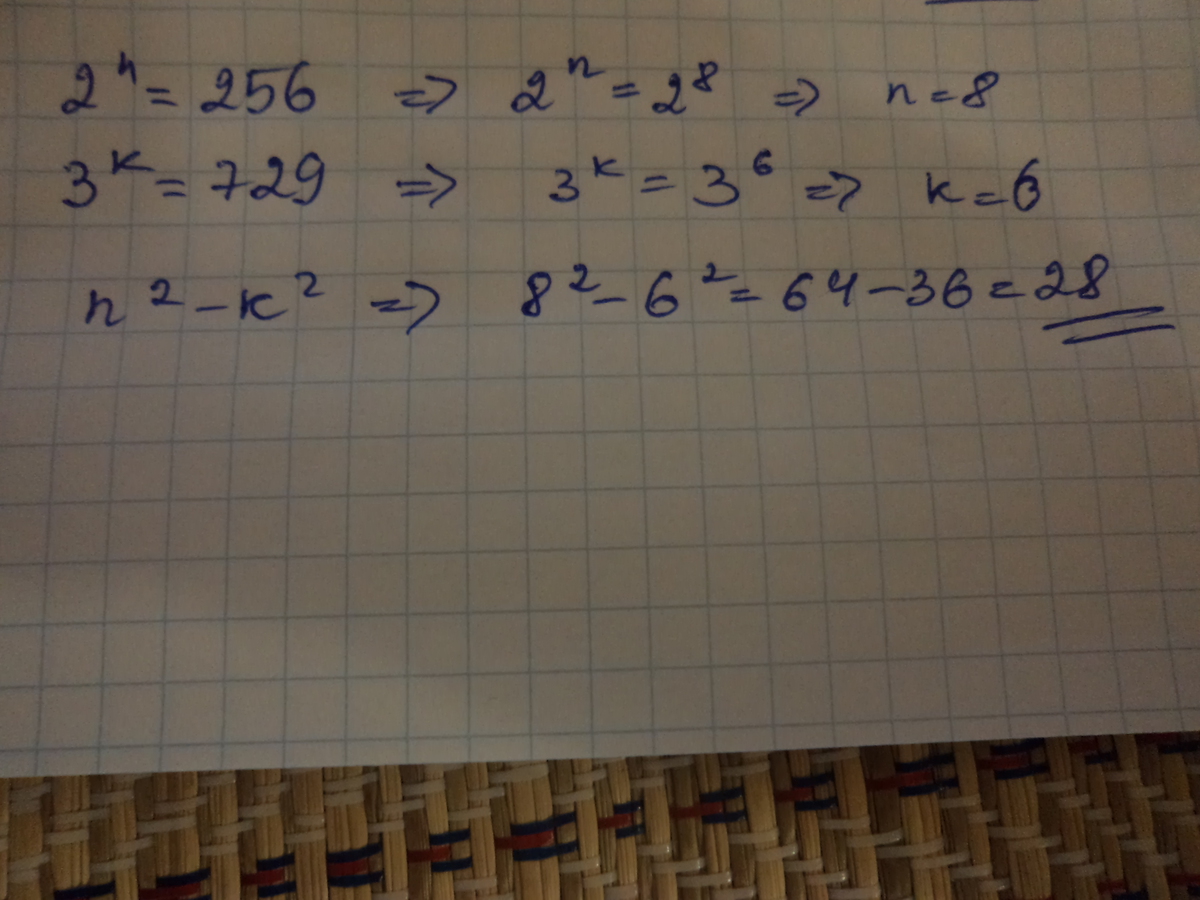 2ⁿ = 256 => 2ⁿ = 2⁸ => n = 8
3ᵏ = 729 => 3ᵏ = 3⁶ => k = 6
n² - k² => 8² - 6² = 64 - 36 = 28